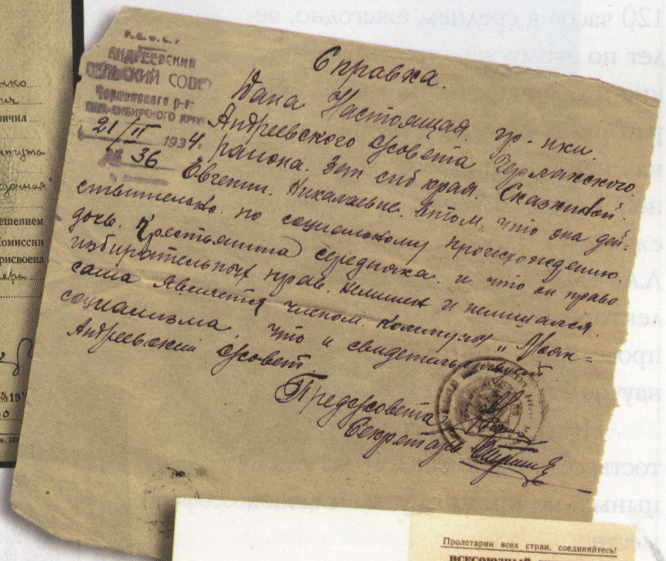 120 часов в среднем ежегодно,
лет по
Р.С.Ф.С.Р
АНДРЕЕВСКИЙ
СЕЛЬСКИЙ СОВЕТ
Черлакского р-на
ЗАП.-СИБИРСКОГО КРАЯ
21/II 1934
№ 36
Справка.
Дана Настоящая. гр-нки.
Андреевского с/совета Черлакского.
района. Зап сиб края. Сказкивой.
Евгении. Николаевне. втом, что она дей-
ствительно. по социальному происхождению.
дочь. Крестьянина середняка. и что он право
избирательных прав. нелишен и нелишался.
сама является членом. коммуны „Маяк=
социализма, что и свидетельствует
Андреевский с/совет.
Предсовета
Секретарь
решением
Комиссии
присвоена
Пролетарии всех стран, соединяйтесь!
ВСЕСОЮЗНЫЙ